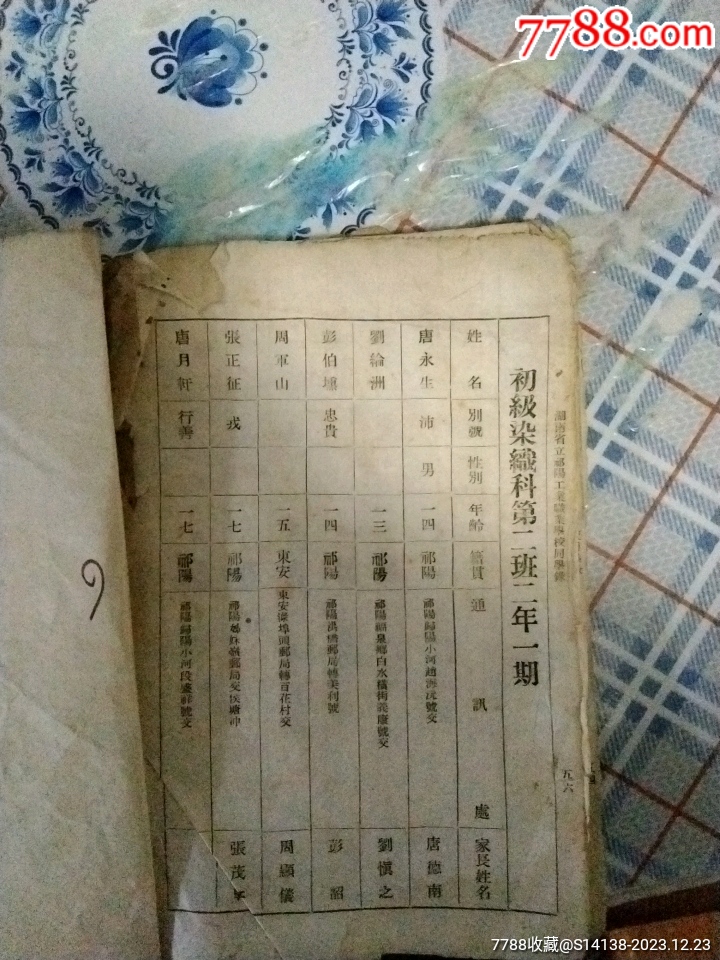 7788.com
湖南省立祁陽工業職業學校同學錄
五六
初級染織科第二班二年一期
姓名 別號 性別 年齡 籍貫 通訊處 家長姓名
唐永生 沛 男 一四 祁陽 祁陽歸陽小河趙 號交 唐德南
劉綸洲 一三 祁陽 祁陽福泉鄉白水橫街義康號交 劉愼之
彭伯壎 忠貴 一四 祁陽 祁陽洪橋郵局轉美利號 彭韶
周軍山 一五 東安 東安淥埠頭郵局轉百花村交 周顯儀
張正征 戎 一七 祁陽 祁陽 郵局交侯 沖 張茂
唐月軒 行善 一七 祁陽 祁陽歸陽小河段 號交
7788收藏@S14138-2023.12.23